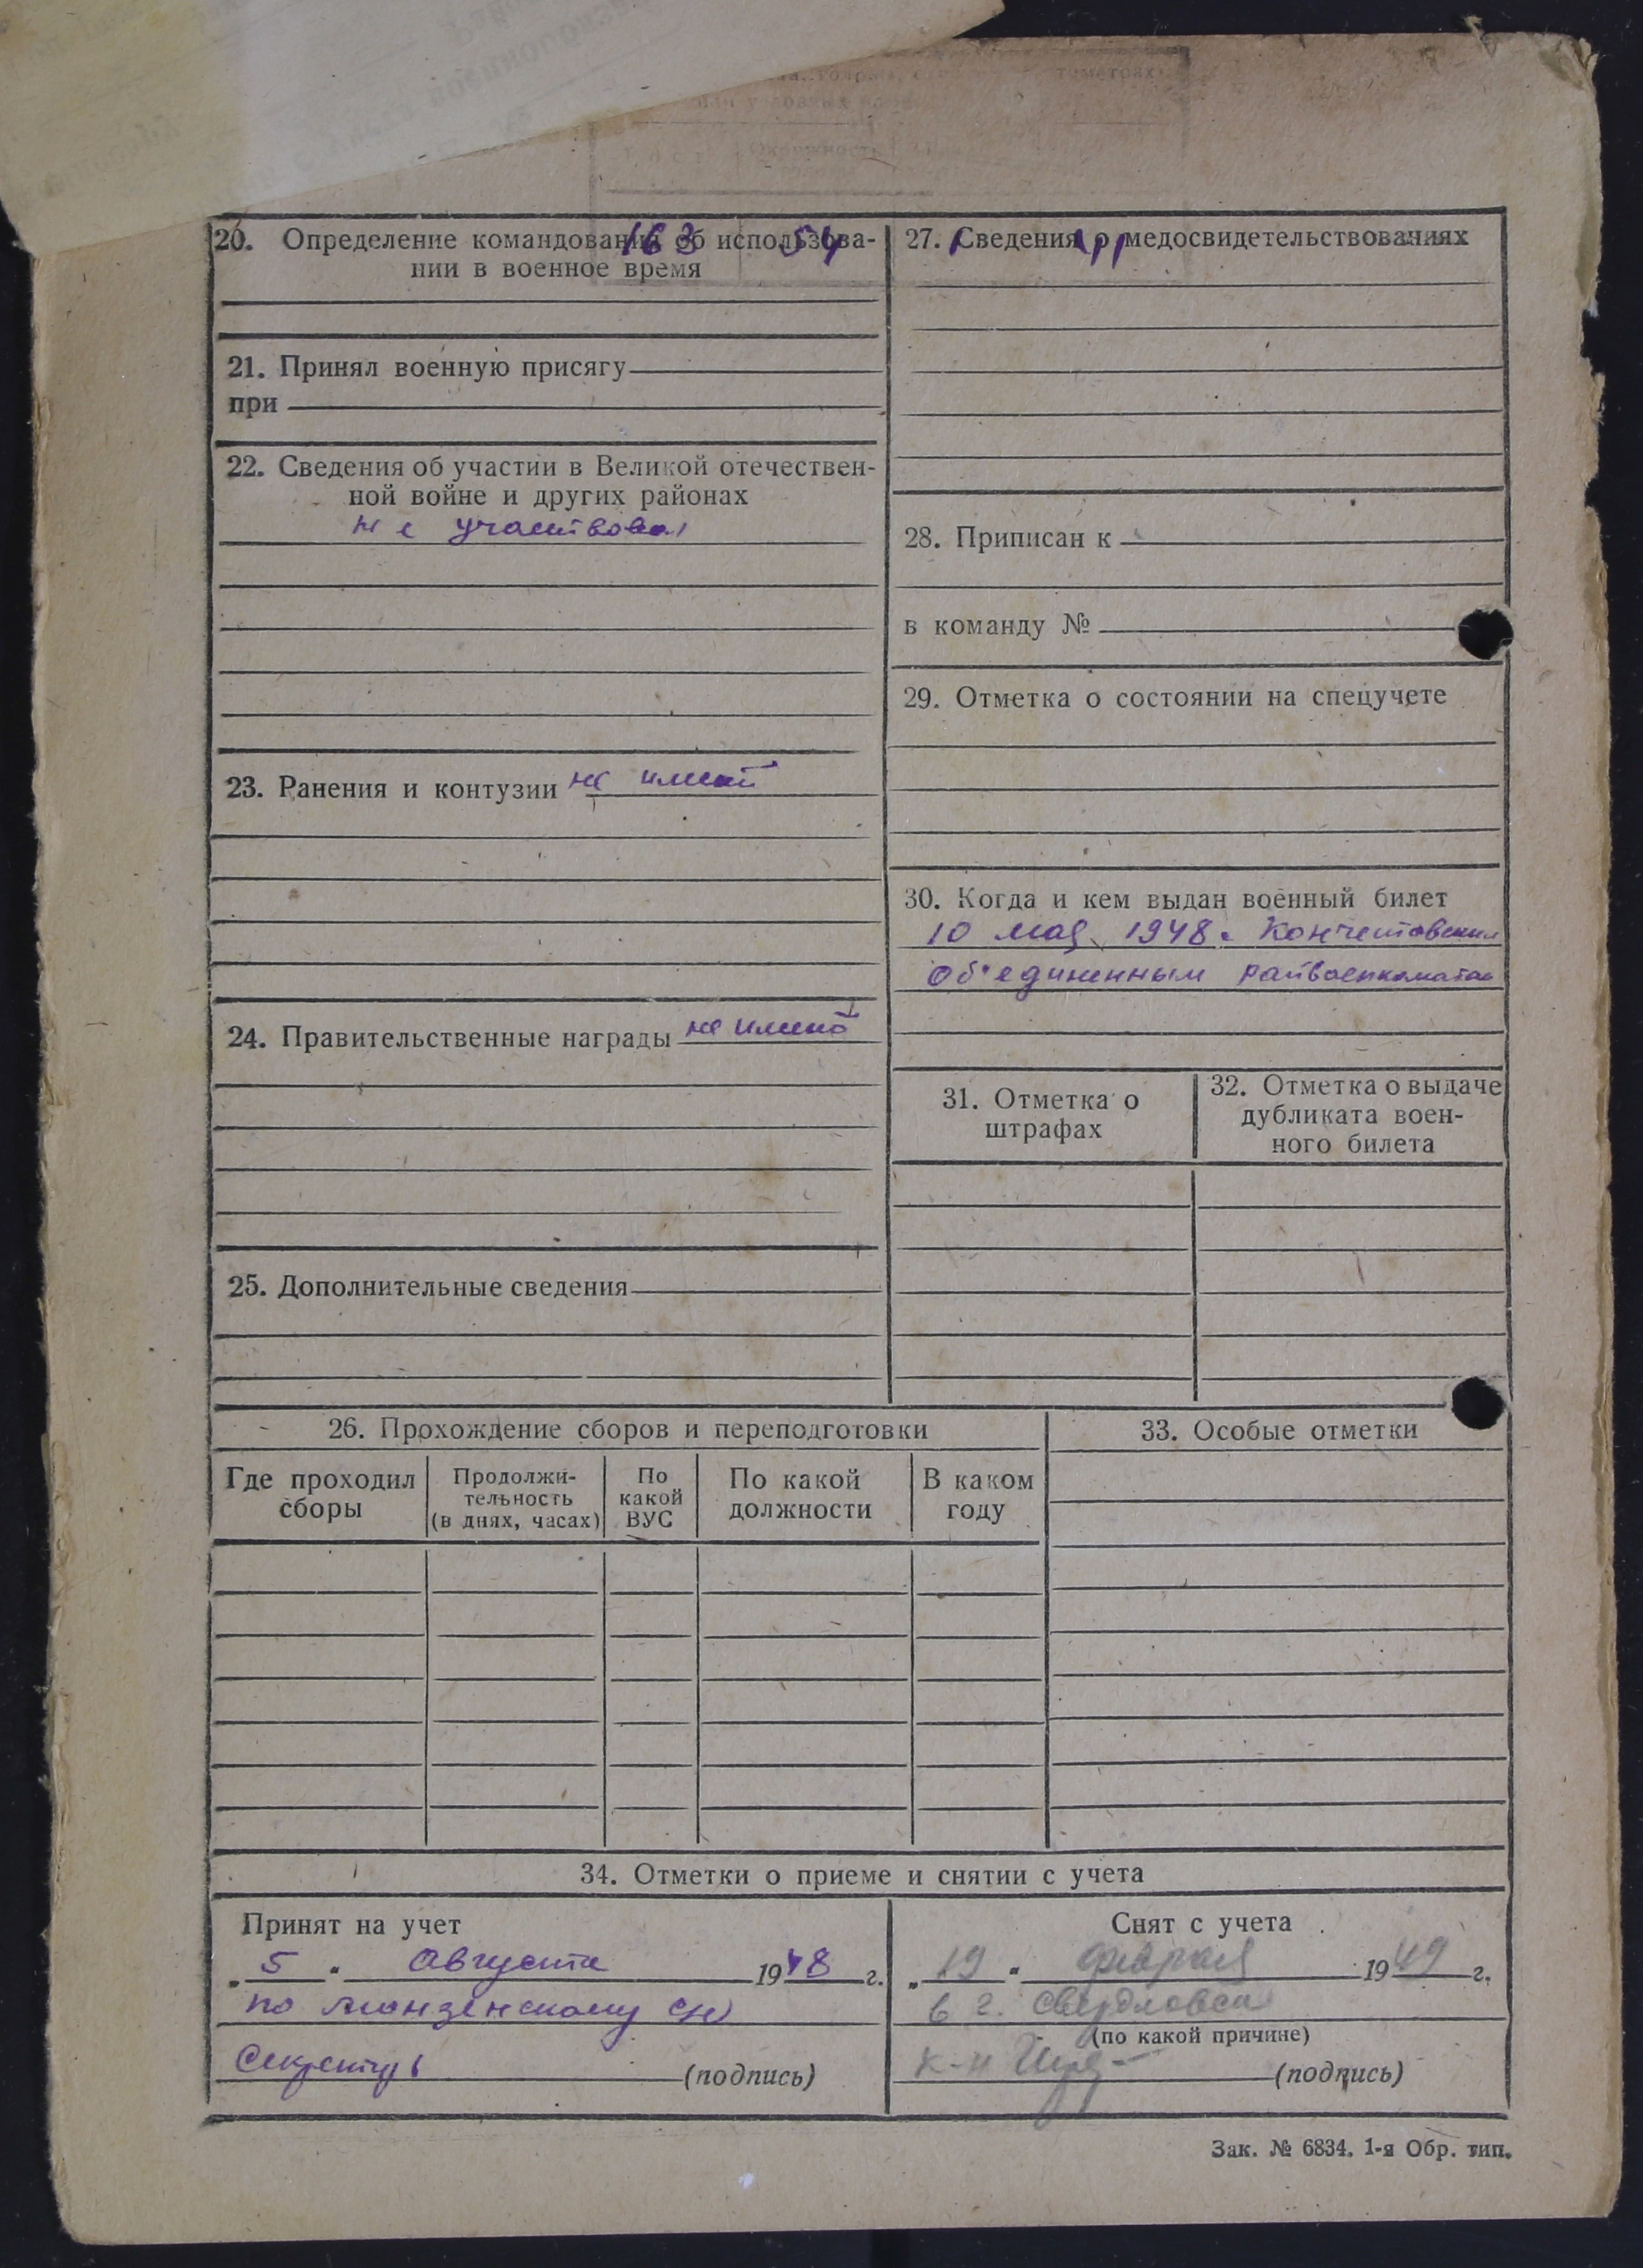 20. Определение командования об использова-
нии в военное время
163 54
21. Принял военную присягу
при
22. Сведения об участии в Великой отечествен-
ной войне и других районах
не участвовал
23. Ранения и контузии не имеет
24. Правительственные награды не имеет
25. Дополнительные сведения
27. Сведения о медосвидетельствованиях
28. Приписан к
в команду №
29. Отметка о состоянии на спецучете
30. Когда и кем выдан военный билет
10 мая 1948г
Об'единенным райвоенкоматом
31. Отметка о
штрафах
32. Отметка о выдаче
дубликата воен-
ного билета
26. Прохождение сборов и переподготовки
Где проходил
сборы
Продолжи-
тельность
(в днях, часах)
По
какой
ВУС
По какой
должности
В каком
году
33. Особые отметки
34. Отметки о приеме и снятии с учета
Принят на учет
„5" Августа 1948 г.
по
(подпись)
Снят с учета
„19" февраля 1949 г.
в г. Свердловск
(по какой причине)
к-н
(подпись)
Зак. № 6834. 1-я Обр. тип.